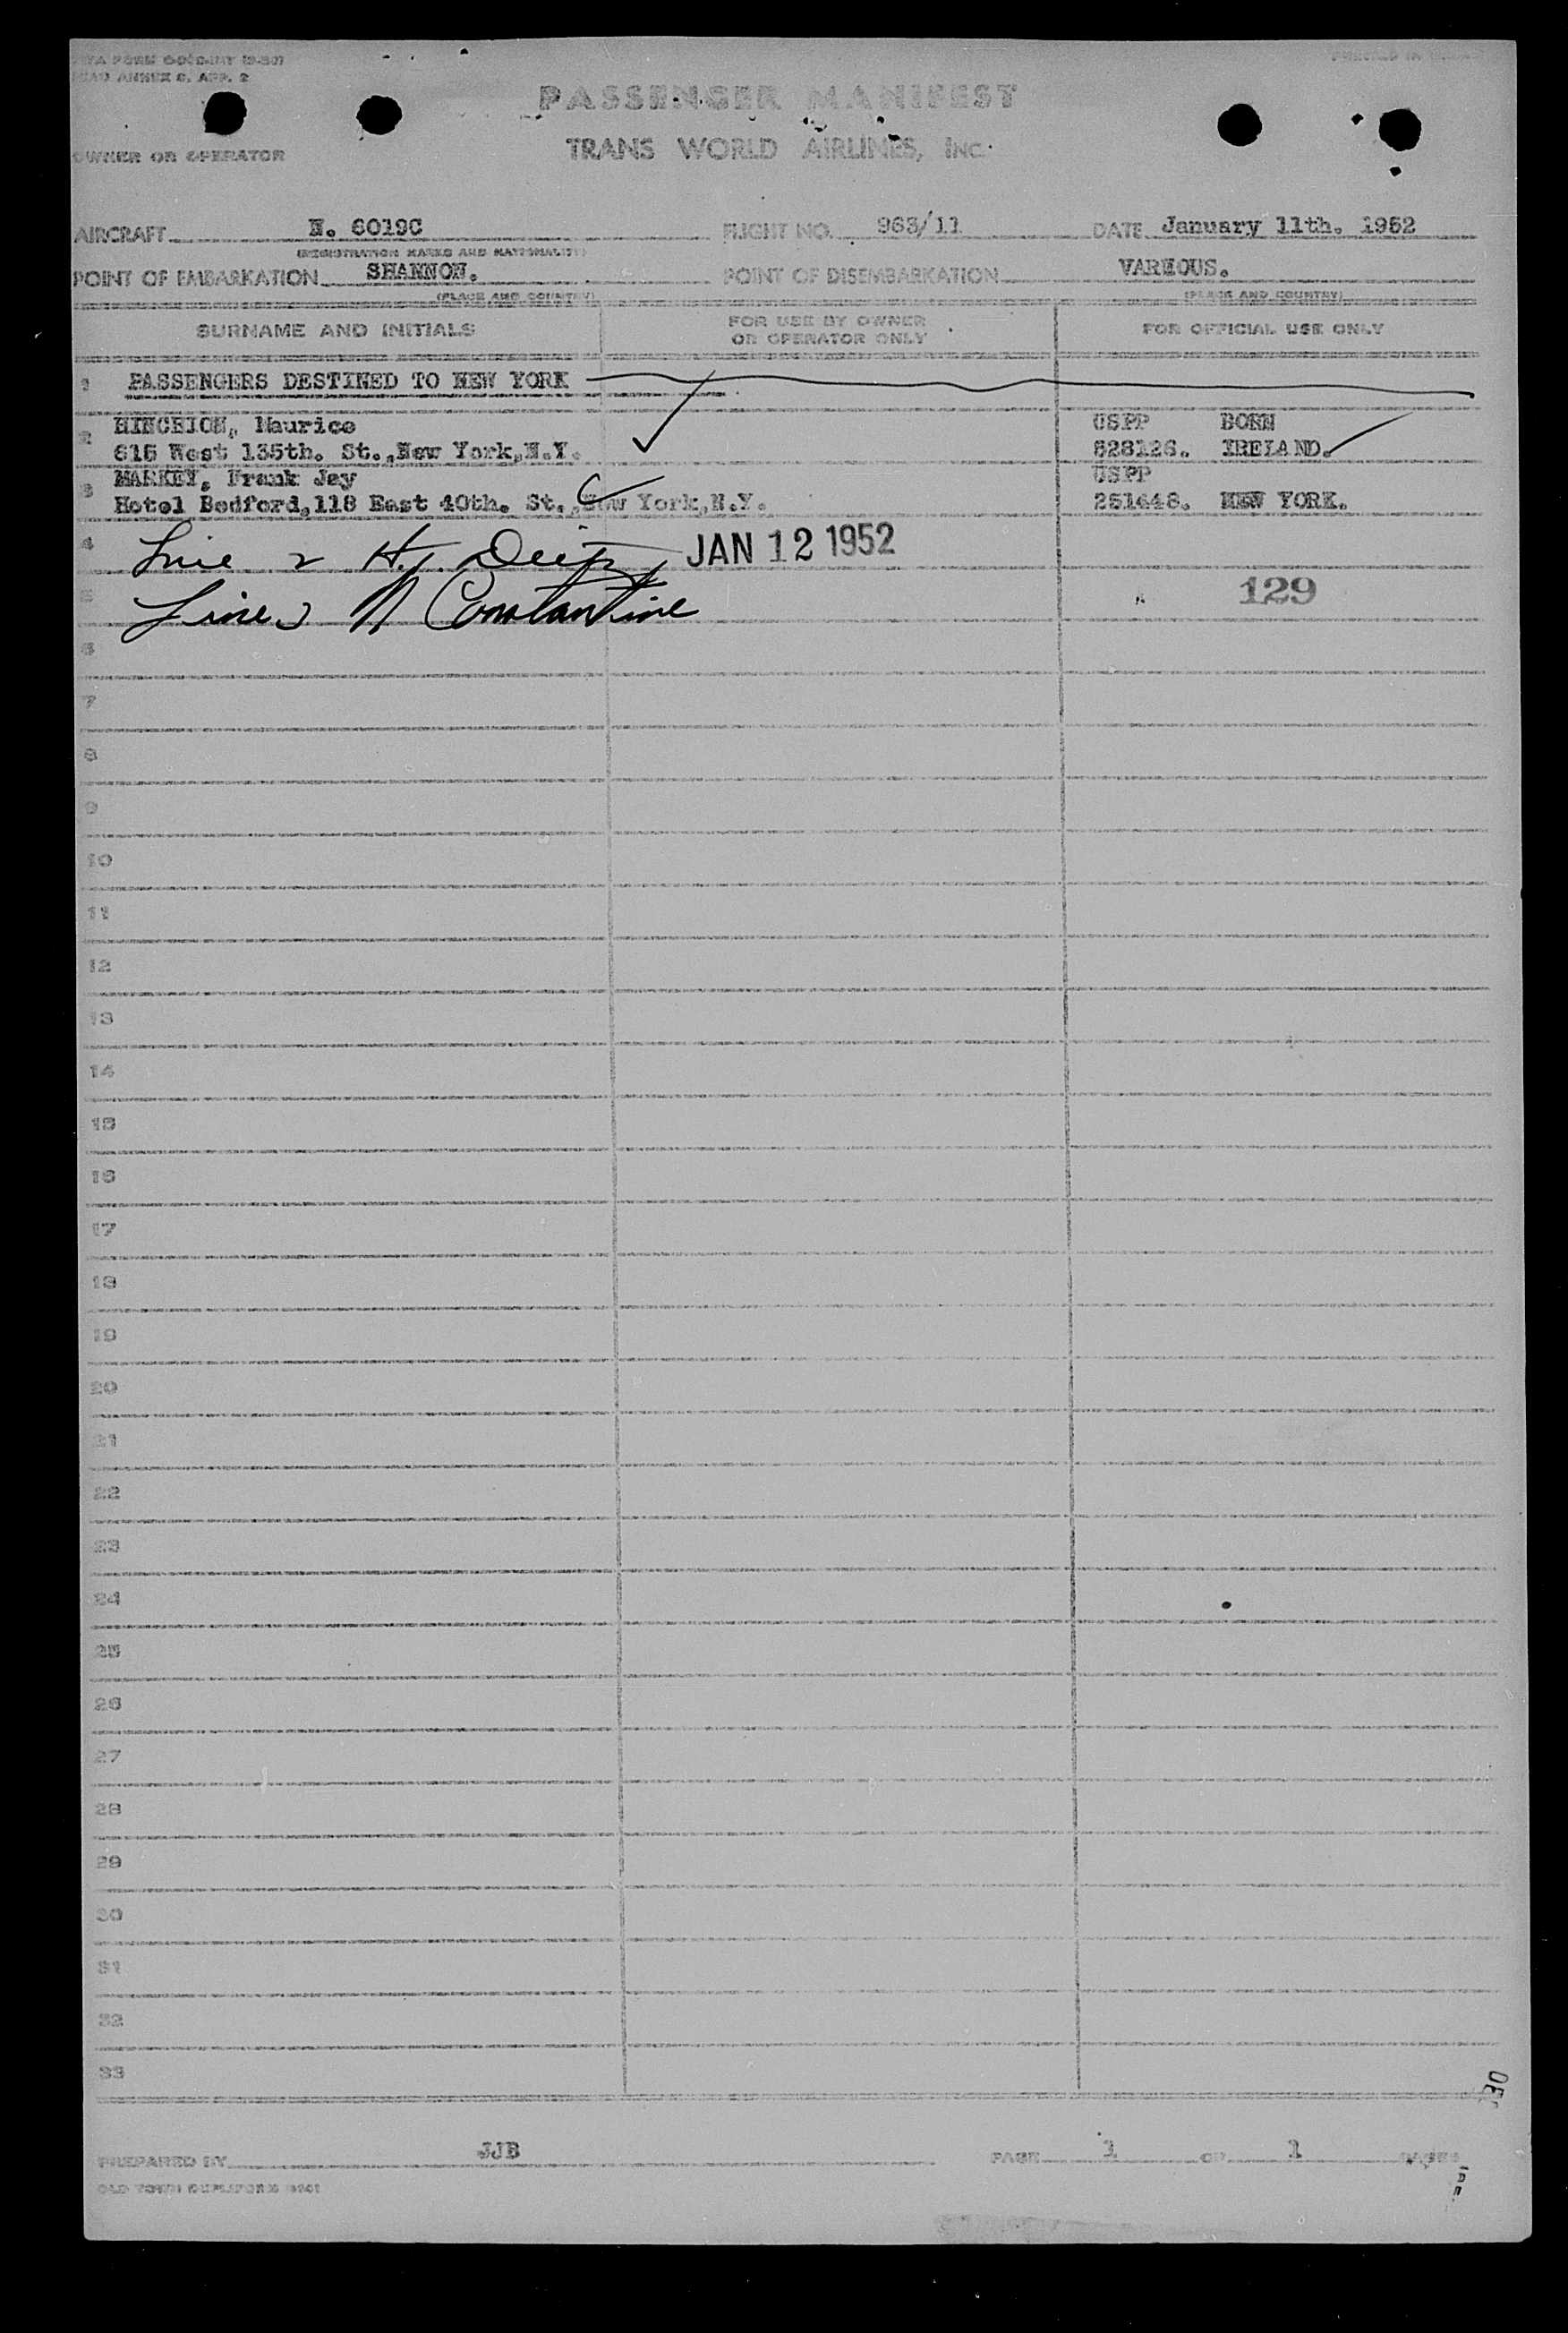 ICAO ANNEX 9, APP. 2
PRINTED IN
PASSENGER MANIFEST
OWNER OR OPERATOR
TRANS WORLD AIRLINES, INC.
AIRCRAFT N. 6019C FLIGHT NO. 963/11 DATE January 11th. 1952
(REGISTRATION MARKS AND NATIONALITY)
POINT OF EMBARKATION SHANNON. POINT OF DISEMBARKATION VARIOUS.
(PLACE AND COUNTRY) (PLACE AND COUNTRY)
SURNAME AND INITIALS FOR USE BY OWNER OR OPERATOR ONLY FOR OFFICIAL USE ONLY
1 PASSENGERS DESTINED TO NEW YORK
2 HINCHION, Maurice USPP BORN
615 West 135th. St.,New York,N.Y. 528126. IRELAND.
3 MARKEY, Frank Jay USPP
Hotel Bedford,118 East 40th. St.,New York,N.Y. 251448. NEW YORK.
4 Line 2 H.J. JAN 12 1952
5 Line 3 N Constantine 129
6
7
8
9
10
11
12
13
14
15
16
17
18
19
20
21
22
23
24
25
26
27
28
29
30
31
32
33
PREPARED BY JJB PAGE 1 OF 1 PAGES